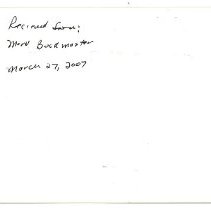 Received from:
Mark Buckmaster
March 27, 2007